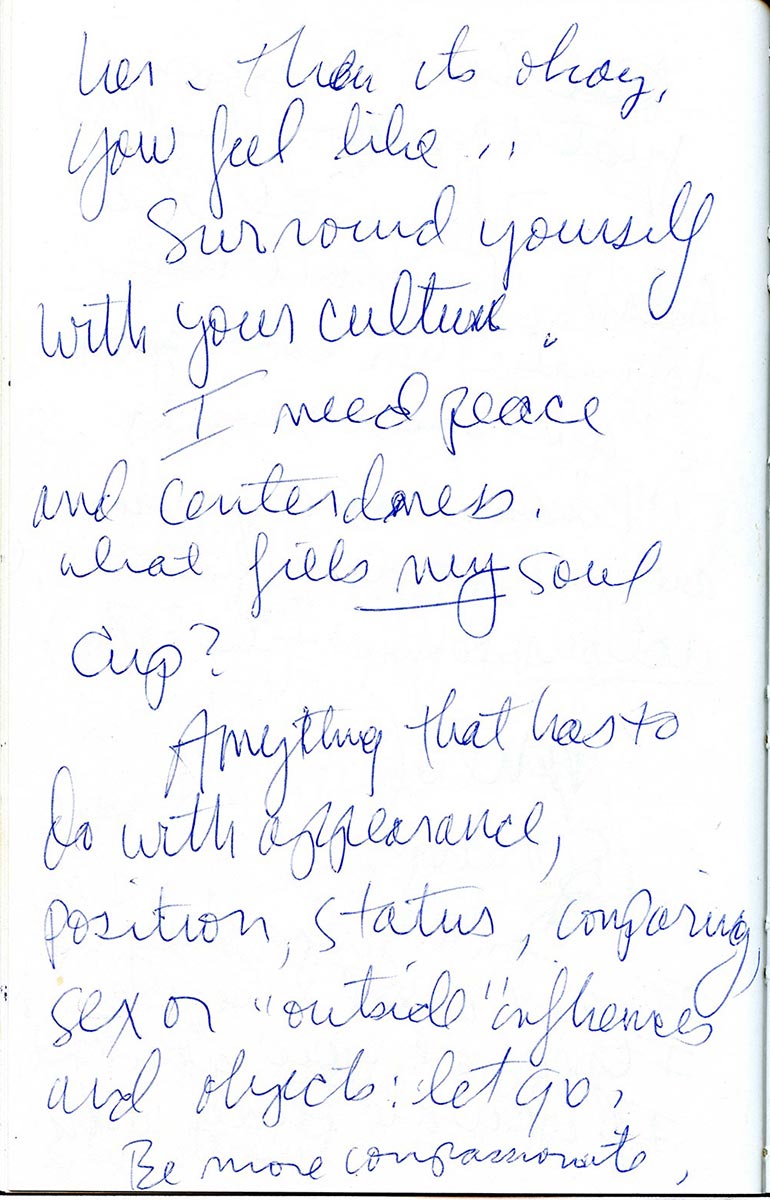 her. Then its okay,
you feel like ..
Surround yourself
with your culture.
I need peace
and centerdness.
what fills my soul
cup?
Anything that has to
do with appearance,
position, status, comparing,
sex or "outside" influences
and objects: let go,
Be more compassionate,